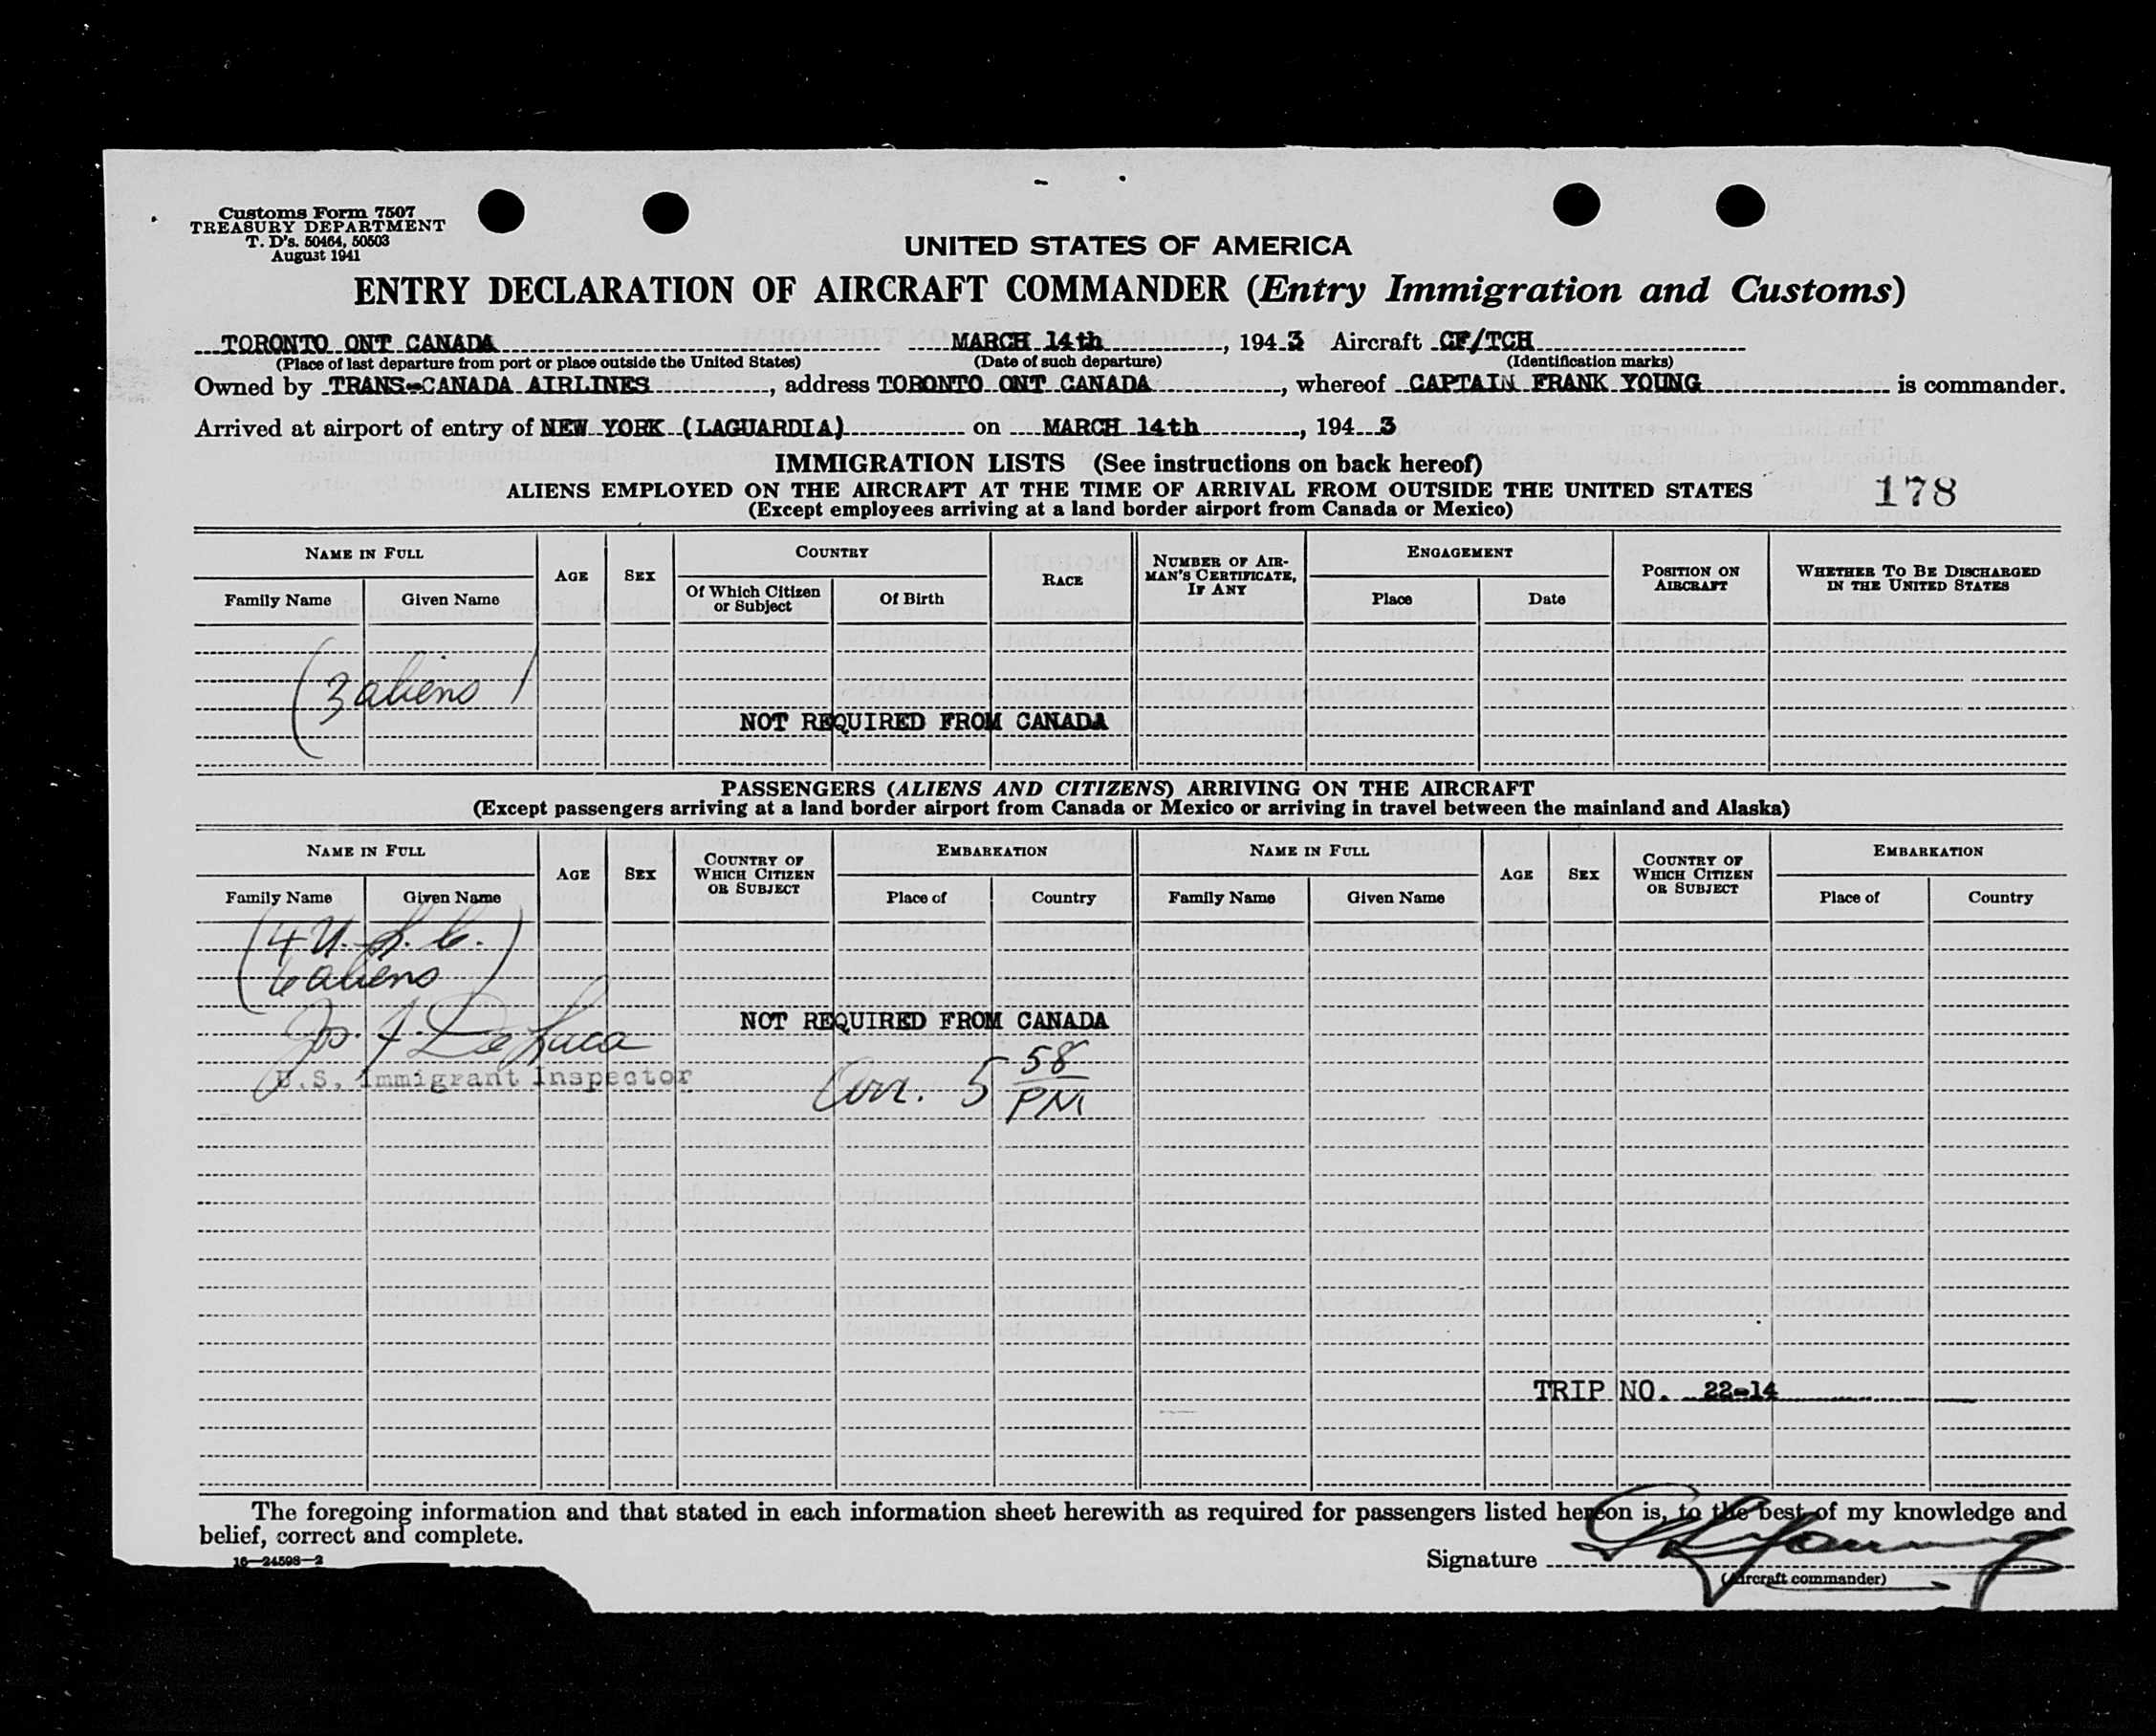 Customs Form 7507
TREASURY DEPARTMENT
T. D's. 50464, 50503
August 1941
UNITED STATES OF AMERICA
ENTRY DECLARATION OF AIRCRAFT COMMANDER (Entry Immigration and Customs)
TORONTO ONT CANADA MARCH 14th, 1943 Aircraft CF/TCH
(Place of last departure from port or place outside the United States) (Date of such departure) (Identification marks)
Owned by TRANS-CANADA AIRLINES, address TORONTO ONT CANADA, whereof CAPTAIN FRANK YOUNG is commander.
Arrived at airport of entry of NEW YORK (LAGUARDIA) on MARCH 14th, 1943
IMMIGRATION LISTS (See instructions on back hereof)
ALIENS EMPLOYED ON THE AIRCRAFT AT THE TIME OF ARRIVAL FROM OUTSIDE THE UNITED STATES
178
(Except employees arriving at a land border airport from Canada or Mexico)
NAME IN FULL AGE SEX COUNTRY RACE NUMBER OF AIRMAN'S CERTIFICATE, IF ANY ENGAGEMENT POSITION ON AIRCRAFT WHETHER TO BE DISCHARGED IN THE UNITED STATES
Family Name Given Name Of Which Citizen or Subject Of Birth Place Date
(3 aliens)
NOT REQUIRED FROM CANADA
PASSENGERS (ALIENS AND CITIZENS) ARRIVING ON THE AIRCRAFT
(Except passengers arriving at a land border airport from Canada or Mexico or arriving in travel between the mainland and Alaska)
NAME IN FULL AGE SEX COUNTRY OF WHICH CITIZEN OR SUBJECT EMBARKATION NAME IN FULL AGE SEX COUNTRY OF WHICH CITIZEN OR SUBJECT EMBARKATION
Family Name Given Name Place of Country Family Name Given Name Place of Country
(4 U.S.C.
6 aliens)
Jos. J. DeLuca
NOT REQUIRED FROM CANADA
U.S. Immigrant Inspector
Arr. 5 58 PM
TRIP NO. 22-14
The foregoing information and that stated in each information sheet herewith as required for passengers listed hereon is, to the best of my knowledge and
belief, correct and complete.
16—24598-2
Signature
(Aircraft commander)